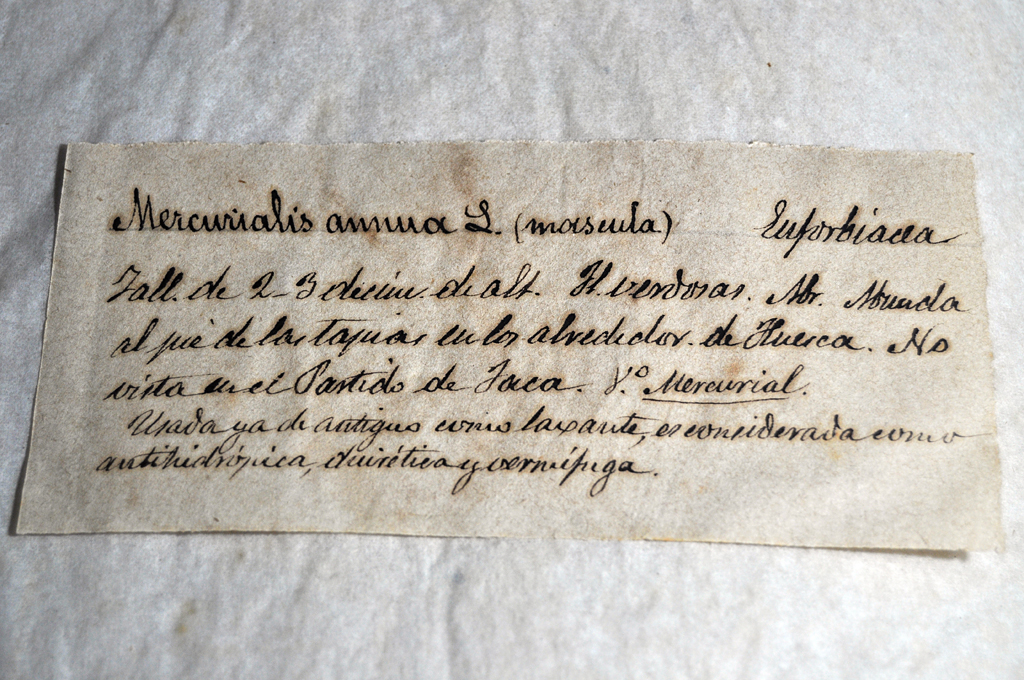 Mercurialis annua L. (mascula) Euforbiacea
Tall. de 2-3 decím. de alt. Fl. verdosas. Abr. Abunda
al pie de las tapias en los alrededor. de Huesca. No
vista en el Partido de Jaca. V.º Mercurial.
Usada ya de antiguo como laxante, es considerada como
antihidrópica, diurética y vermífuga.